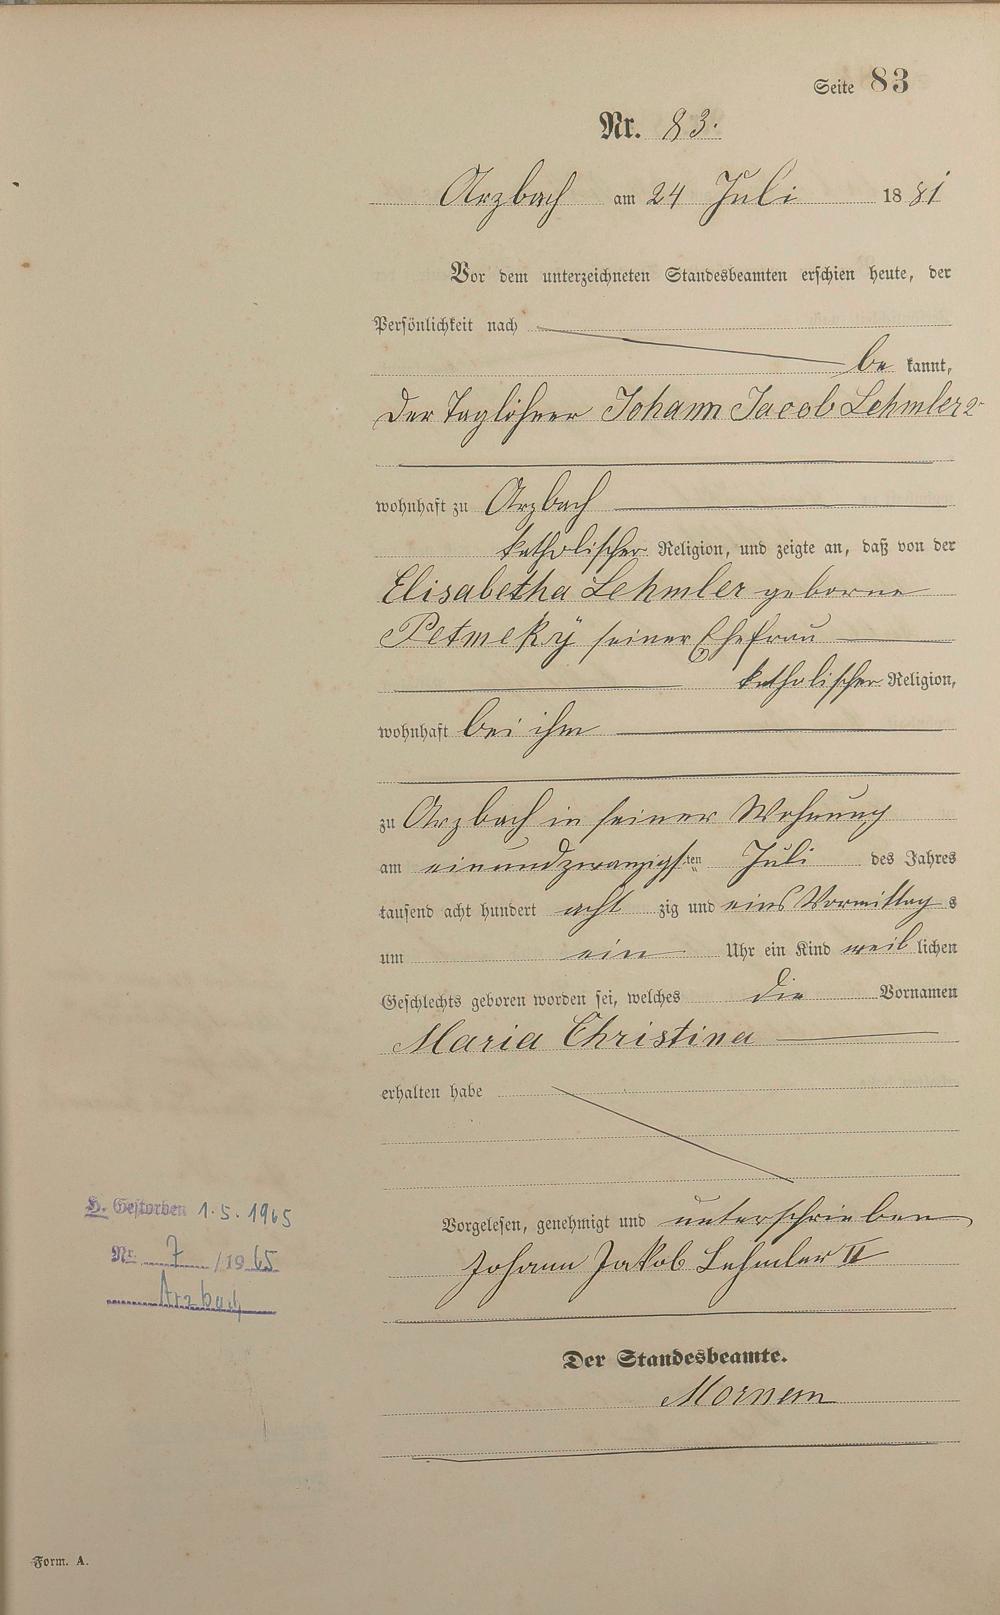 Seite 83
Nr. 83.
Arzbach am 24 Juli 1881
Vor dem unterzeichneten Standesbeamten erschien heute, der
Persönlichkeit nach
be kannt,
der Taglöhner Johann Jacob Lehmler 2r
wohnhaft zu Arzbach
katholischer Religion, und zeigte an, daß von der
Elisabetha Lehmler geborne
Petmeky seiner Ehefrau
katholischer Religion,
wohnhaft bei ihm
zu Arzbach in seiner Wohnung
am einundzwanzigsten Juli des Jahres
tausend acht hundert acht zig und eins Vormittag s
um ein Uhr ein Kind weib lichen
Geschlechts geboren worden sei, welches die Vornamen
Maria Christina
erhalten habe
Vorgelesen, genehmigt und unterschrieben
Johann Jakob Lehmler II
Der Standesbeamte.
S. Gestorben 1.5.1965
Nr. 7 / 1965
Arzbach
Form. A.